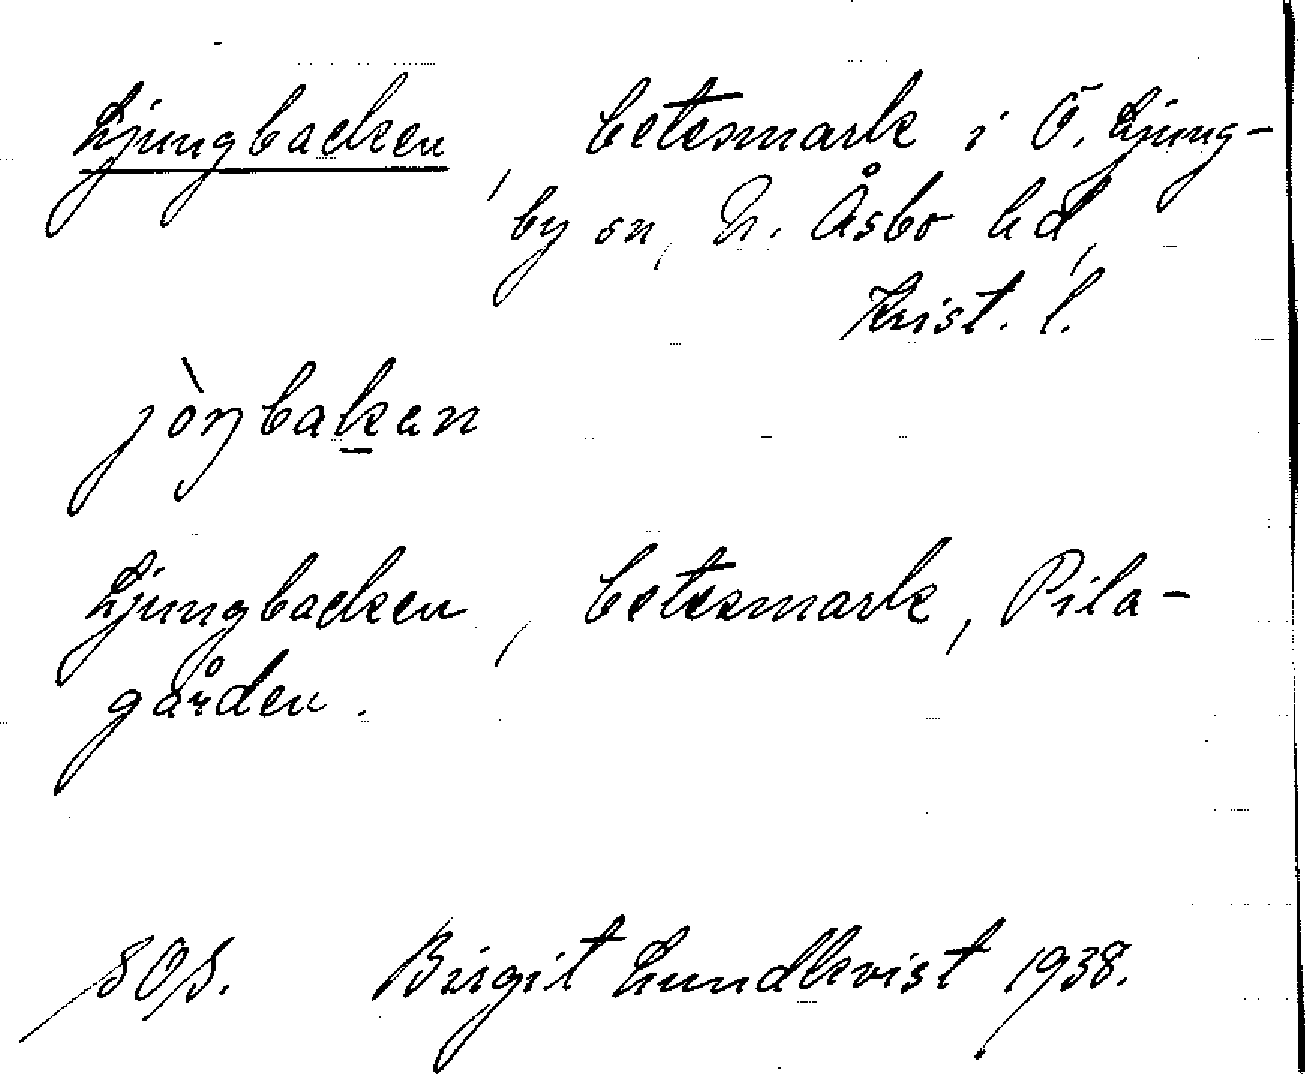 Ljungbacken, betesmark i Ö. Ljung-
by sn, N. Åsbo hd,
Krist. l.
jòŋbakan
Ljungbacken, betesmark, Pila-
gården.
SOS. Birgit Lundkvist 1938.